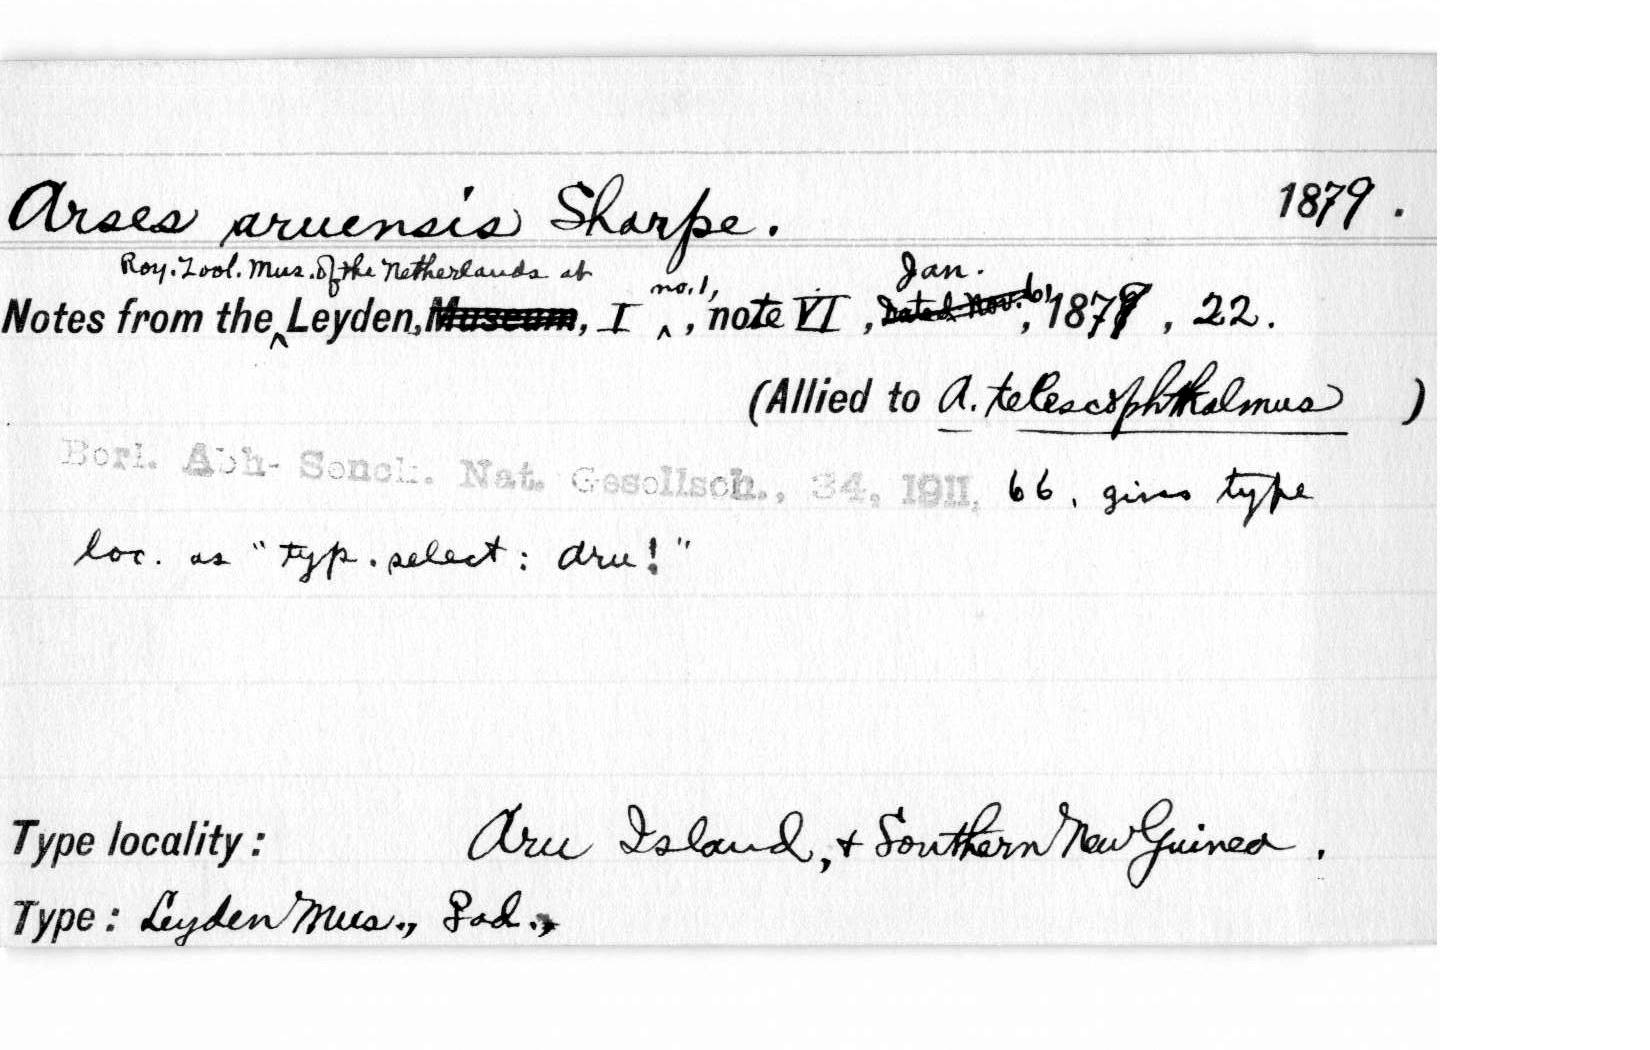 Arses aruensis Sharpe. 1879.
Roy. Zool. Mus. of the Netherlands at no. 1, Jan.
Notes from the ‸ Leyden, Museum, I ‸, note VI, Dated Nov. 6, 1879, 22.
(Allied to A. telescophthalmus )
Berl. Abh- Senck. Nat. Gesellsch., 34, 1911, 66, gives type
loc. as "typ. select: Aru!"
Type locality: Aru Island, + Southern New Guinea.
Type: Leyden Mus.,